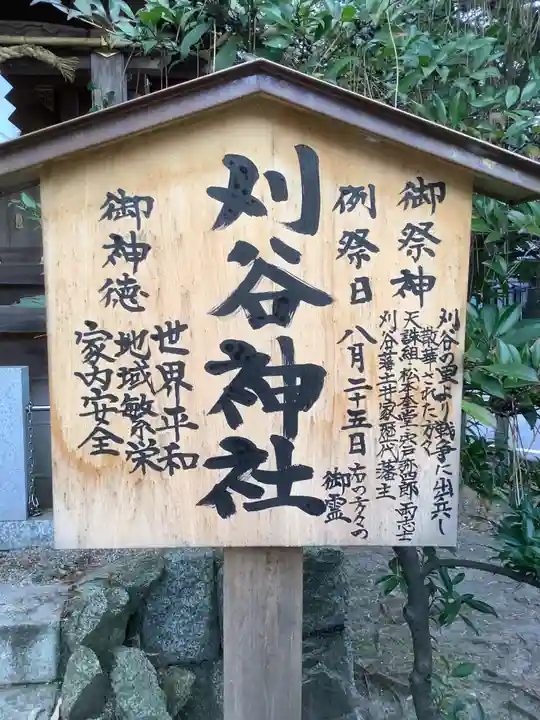 御祭神
刈谷の里より戦争に出兵し
散華された方々
天誅組 松本奎堂 宍戸弥四郎 両志士
刈谷藩土井家歴代藩主
右の方々の
御霊
例祭日 八月二十五日
刈谷神社
御神徳
世界平和
地域繁栄
家内安全